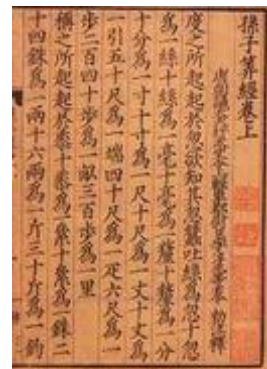 孫子算經卷上
度之所起起於忽欲知其忽蠶吐絲爲忽十忽
爲一絲十絲爲一毫十毫爲一釐十釐爲一分
十分爲一寸十寸爲一尺十尺爲一丈十丈爲
一引五十尺爲一端四十尺爲一疋六尺爲一
步二百四十步爲一畝三百步爲一里
稱之所起起於黍十黍爲一絫十絫爲一銖二
十四銖爲一兩十六兩爲一斤三十斤爲一鈞